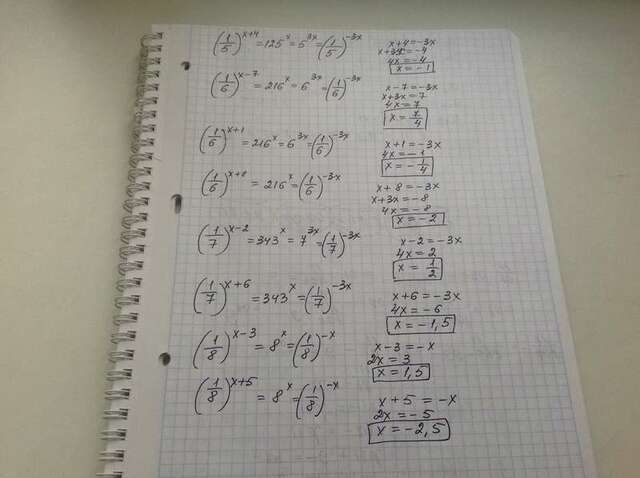 (1/5)^(x+4) = 125^x = 5^(3x) = (1/5)^(-3x)
x+4=-3x
x+3x=-4
4x=-4
x=-1
(1/6)^(x-7) = 216^x = 6^(3x) = (1/6)^(-3x)
x-7=-3x
x+3x=7
4x=7
x=7/4
(1/6)^(x+1) = 216^x = 6^(3x) = (1/6)^(-3x)
x+1=-3x
4x=-1
x=-1/4
(1/6)^(x+8) = 216^x = (1/6)^(-3x)
x+8=-3x
x+3x=-8
4x=-8
x=-2
(1/7)^(x-2) = 343^x = 7^(3x) = (1/7)^(-3x)
x-2=-3x
4x=2
x=1/2
(1/7)^(x+6) = 343^x = (1/7)^(-3x)
x+6=-3x
4x=-6
x=-1,5
(1/8)^(x-3) = 8^x = (1/8)^(-x)
x-3=-x
2x=3
x=1,5
(1/8)^(x+5) = 8^x = (1/8)^(-x)
x+5=-x
2x=-5
x=-2,5